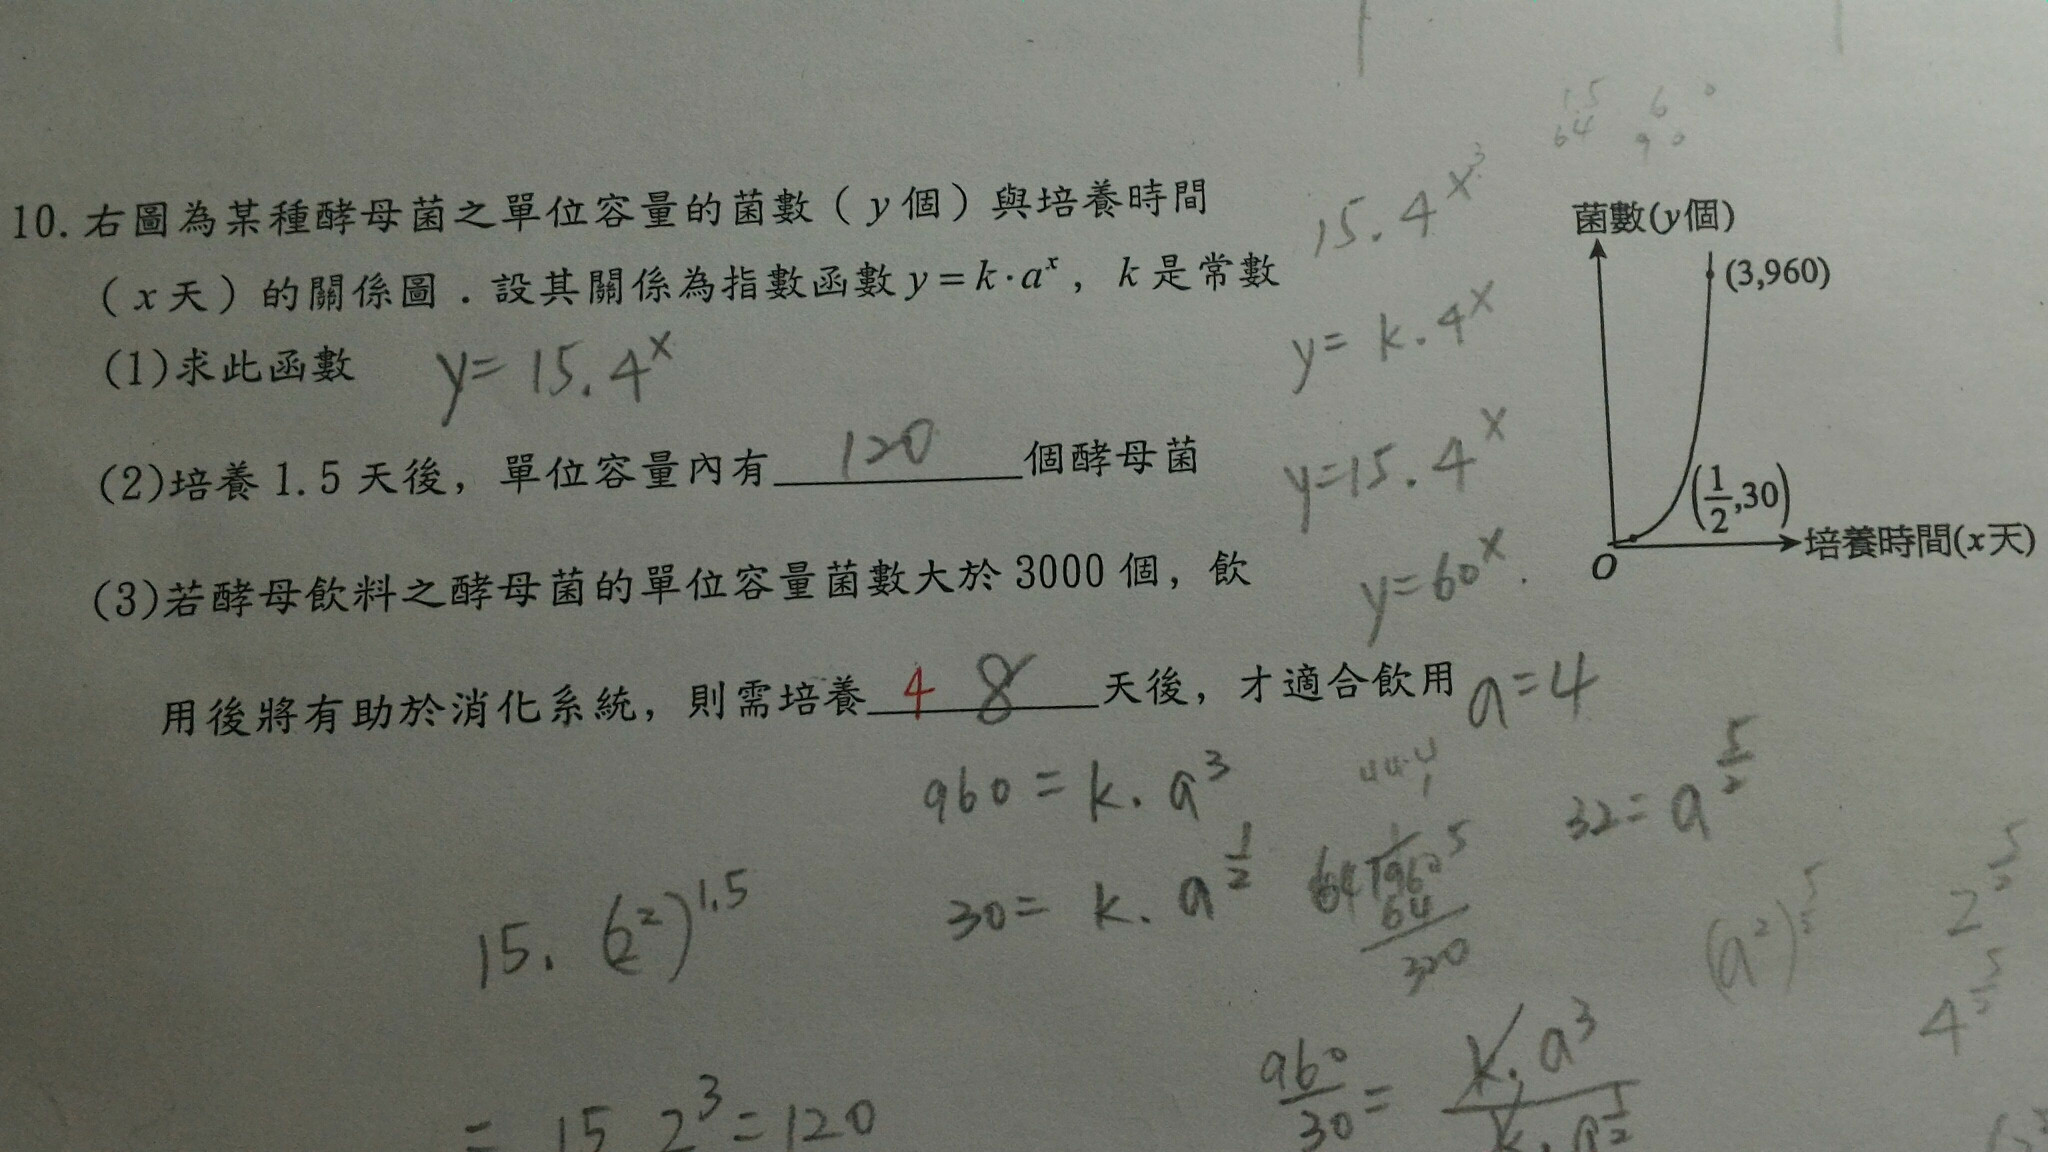 10. 右圖為某種酵母菌之單位容量的菌數（y個）與培養時間
（x天）的關係圖．設其關係為指數函數 y = k·a^x，k 是常數
(1)求此函數 y = 15.4^x
(2)培養 1.5 天後，單位容量內有 120 個酵母菌
(3)若酵母飲料之酵母菌的單位容量菌數大於 3000 個，飲
用後將有助於消化系統，則需培養 4 8 天後，才適合飲用
菌數(y個)
(3,960)
(1/2,30)
O
培養時間(x天)
1.5 6 0
64 9 0
15.4^x 3
y = k.4^x
y = 15.4^x
y = 60^x.
a = 4
960 = k. a^3
30 = k. a^1/2
32 = a^5/2
64 960 5
64
320
15. (2^2)^1.5
= 15 2^3 = 120
960/30 = k. a^3 / k. a^1/2
(a^2)^5/2
2^5/2
4^5/2